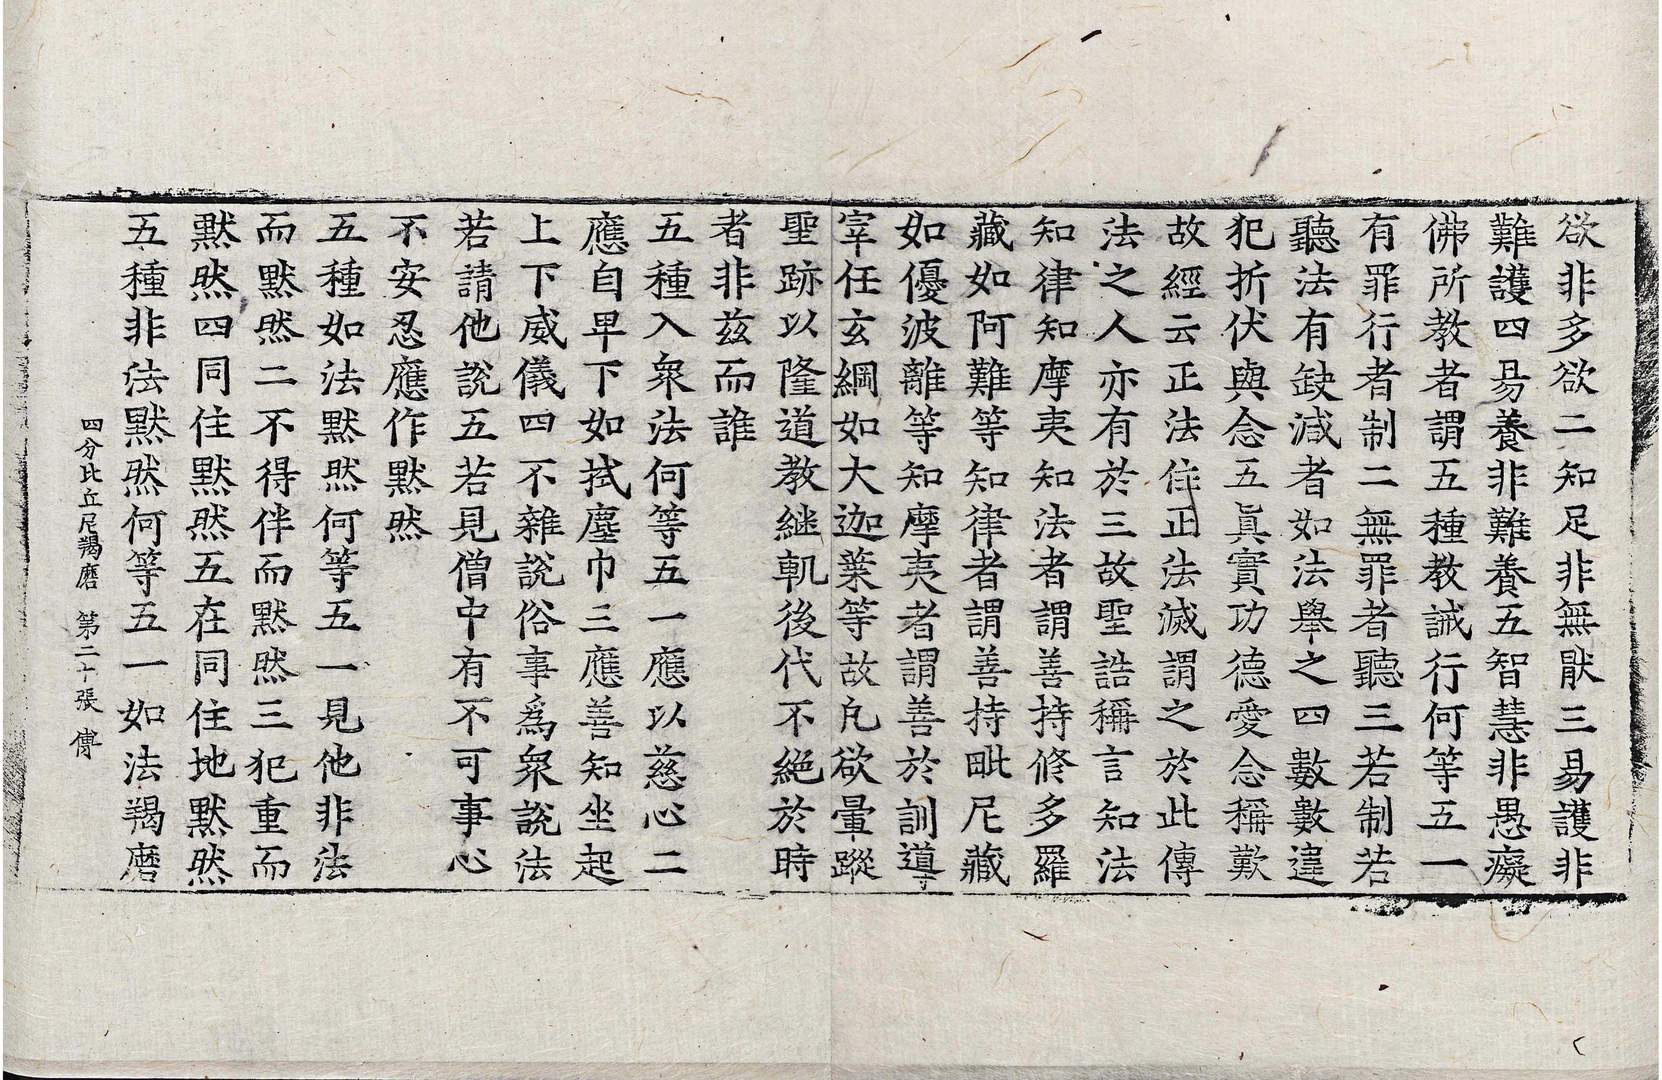 欲非多欲二知足非無猒三易護非
難護四易養非難養五智慧非愚癡
佛所教者謂五種教誡行何等五一
有罪行者制二無罪者聽三若制若
聽法有缺減者如法舉之四數數違
犯折伏與念五眞實功德愛念稱歎
故經云正法住正法滅謂之於此傳
法之人亦有於三故聖誥稱言知法
知律知摩夷知法者謂善持修多羅
藏如阿難等知律者謂善持毗尼藏
如優波離等知摩夷者謂善於訓導
宰任玄綱如大迦葉等故凡欲暈蹤
聖跡以隆道教継軌後代不絕於時
者非兹而誰
五種入衆法何等五一應以慈心二
應自卑下如拭塵巾三應善知坐起
上下威儀四不雜說俗事爲衆說法
若請他說五若見僧中有不可事心
不安忍應作默然
五種如法默然何等五一見他非法
而默然二不得伴而默然三犯重而
默然四同住默然五在同住地默然
五種非法默然何等五一如法羯磨
四分比丘尼羯磨 第二十張 傅